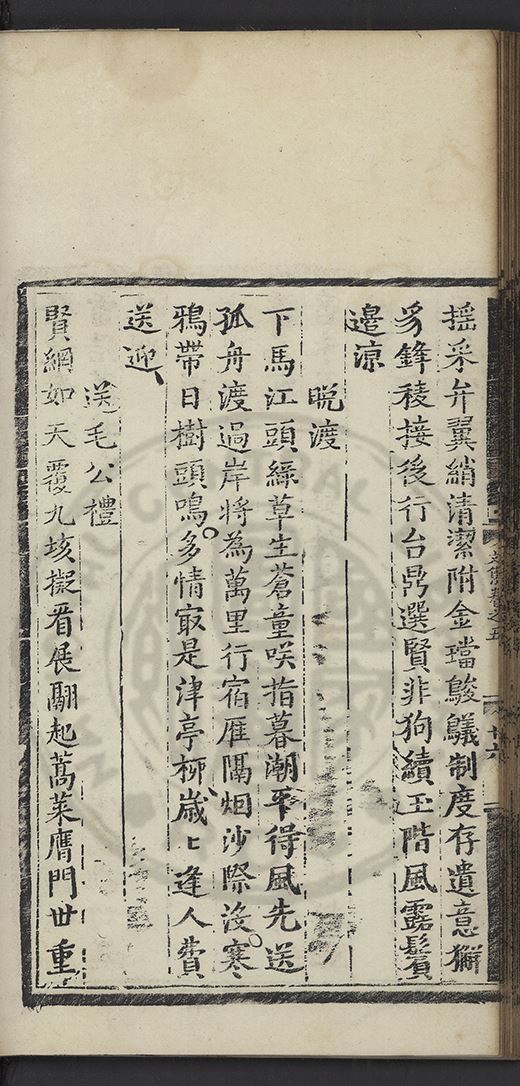 搖采弁翼綃清潔附金璫鵔鸃制度存遺意獬
豸鋒稜接後行台鼎選賢非狗續玉階風露鬢
邉涼
晩渡
下馬江頭緑草生蒼童咲指暮潮平得風先送
孤舟渡過岸將為萬里行宿雁隔烟沙際沒寒
鴉帶日樹頭鳴多情㝡是津亭柳歲〻逢人費
送迎
送毛公禮
賢網如天覆九垓擬看展翮起蒿萊膺門世重
卷之五
廿六